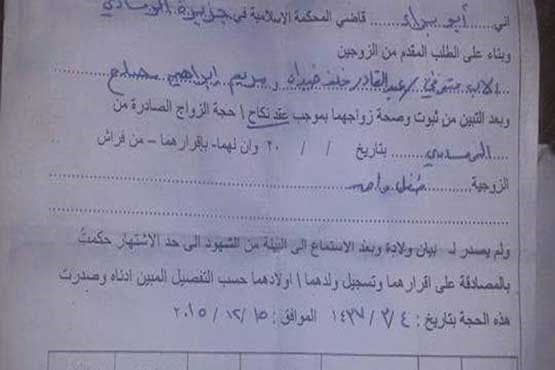 اني ..... أبو براء ..... قاضي المحكمة الاسلامية في جزيرة الرمادي
وبناء على الطلب المقدم من الزوجين
الاب متوفي / عبدالقادر خلف و مريم ابراهيم صالح
وبعد التبين من ثبوت وصحة زواجهما بموجب عقد نكاح \ حجة الزواج الصادرة من
بتاريخ / / ٢٠ وان لهما- بإقرارهما – من فراش
الزوجية طفل واحد
ولم يصدر لـ بيان ولادة وبعد الاستماع الى البينة من الشهود الى حد الاشتهار حكمت
بالمصادقة على اقرارهما وتسجيل ولدهما \ اولادهما حسب التفصيل المبين ادناه وصدرت
هذه الحجة بتاريخ : ٤ / ٣ / ١٤٣٧ الموافق : ١٥ / ١٢ / ٢٠١٥